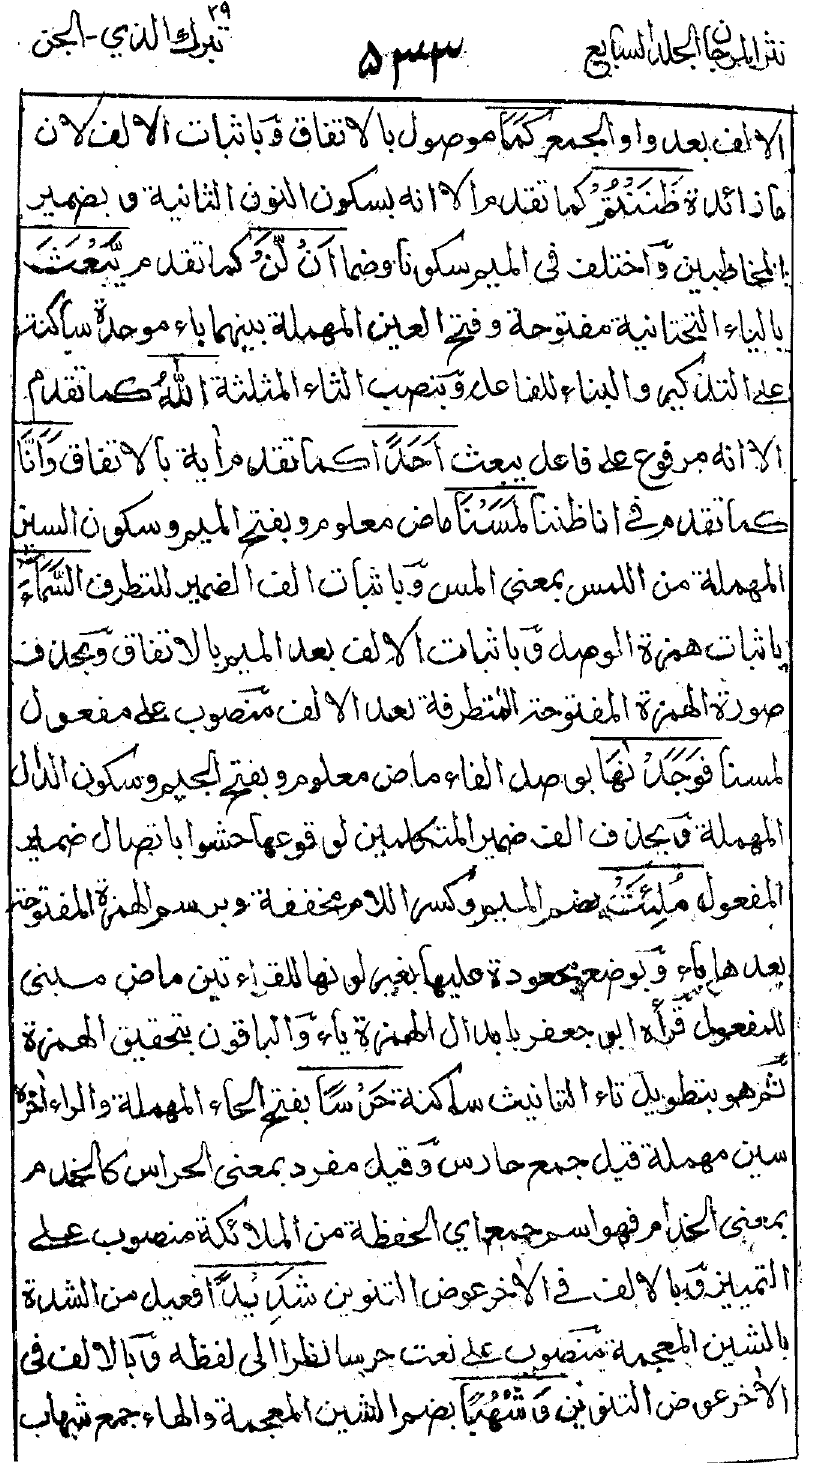 نثر المرجان الجلد السابع
۵۳۳
تبرك الذي ۲۹ - الجن
الالف بعد واو الجمع كَمَا موصول بالاتفاق وَباثبات الالف لان
ما زائدة ظَنَنْتُمْ كما تقدم الا انه بسكون النون الثانية و بضمير
المخاطبين وَاختلف فى الميم سكونا وضما اَنْ لَّنْ كما تقدم يَّبْعَثَ
بالياء التحتانية مفتوحة و فتح العين المهملة بينهما باء موحدة ساكنة
على التذكير والبناء للفاعل وَبنصب الثاء المثلثة اللّٰهُ كما تقدم
الا انه مرفوع على فاعل يبعث اَحَدًا كما تقدم رأية بالاتفاق وَاَنَّا
كما تقدم في انا ظننا لَمَسْنَا ماض معلوم و بفتح الميم و سكون السين
المهملة من اللمس بمعنى المس وَباثبات الف الضمير للتطرف السَّمَآءَ
باثبات همزة الوصل وَباثبات الالف بعد الميم بالاتفاق وَبحذف
صورة الهمزة المفتوحة المتطرفة بعد الالف منصوب على مفعول
لمسنا فَوَجَدْنٰهَا بوصل الفاء ماض معلوم و بفتح الجيم و سكون الدال
المهملة وَبحذف الف ضمير المتكلمين لوقوعها حشوا باتصال ضمير
المفعول مُلِئَتْ بضم الميم وَكسر اللام مخففة و برسم الهمزة المفتوحة
بعدها ياء وَبوضع مجعودة عليها بغير لونها للقراءتين ماض مبنى
للمفعول قرأه ابو جعفر بابدال الهمزة ياء وَالباقون بتحقيق الهمزة
ثم هو بتطويل تاء التانيث ساكنة حَرَسًا بفتح الحاء المهملة والراء اخره
سين مهملة قيل جمع حارس وَقيل مفرد بمعنى الحراس كالخدم
بمعنى الخدام فهو اسم جمع اي الحفظة من الملائكة منصوب على
التمييز وَبالالف في الاخر عوض التنوين شَدِيْدًا فعيل من الشدة
بالشين المعجمة منصوب على نعت حرسا نظرا الى لفظه وَبالالف فى
الاخر عوض التنوين وَشُهُبًا بضم الشين المعجمة والهاء جمع شهاب